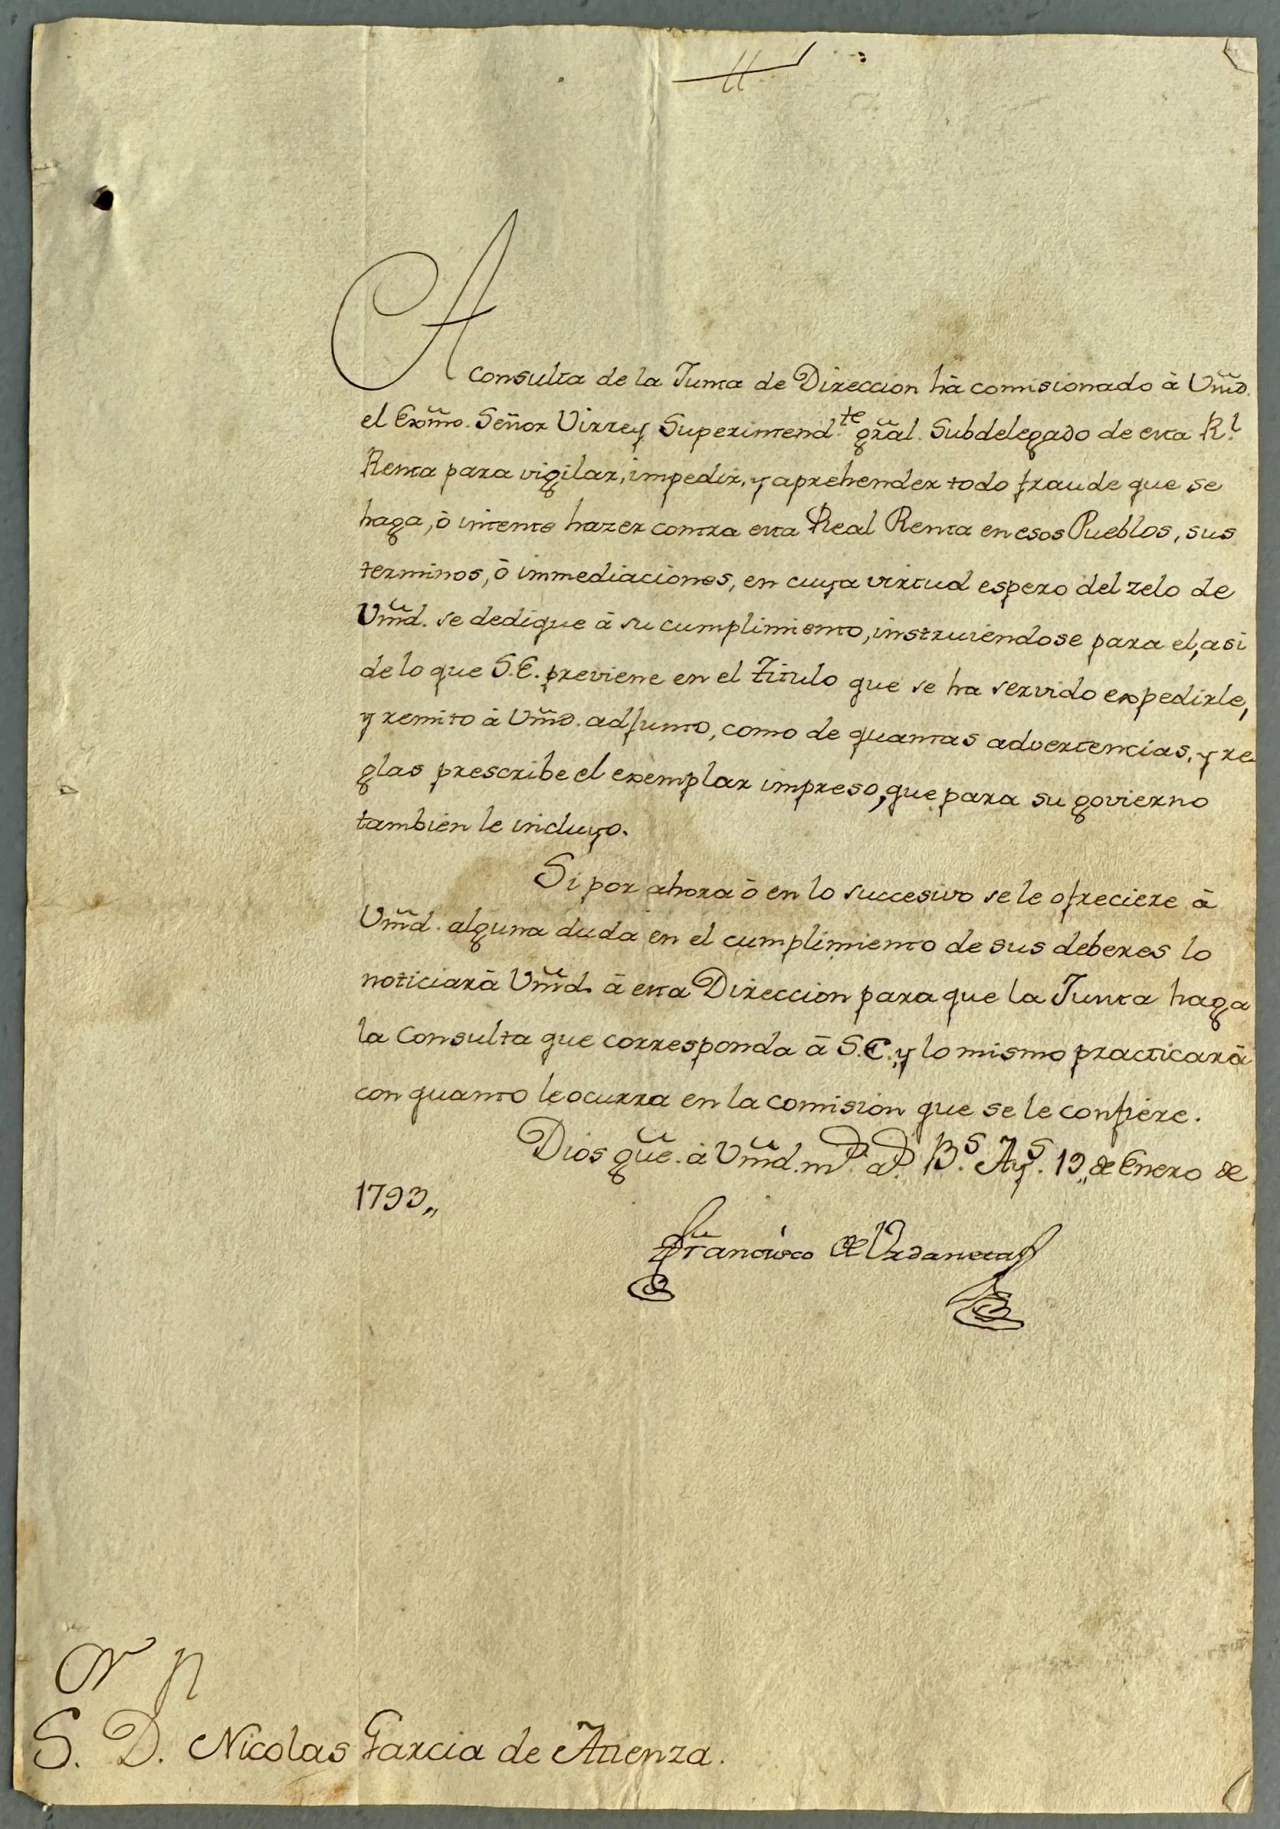 A
consulta de la Junta de Direccion hà comisionado à Vm̃d.
el Exm̃o. Señor Virrey Superintend.te gr̃al. Subdelegado de esta R.l
Renta para vigilar, impedir, y aprehender todo fraude que se
haga, ò intente hazer contra esta Real Renta en esos Pueblos, sus
terminos, ò immediaciones, en cuya virtud espero del zelo de
Vm̃d. se dedique à su cumplimiento, instruiendose para el, asi
de lo que S.E. previene en el titulo que se ha servido expedirle,
y remito à Vm̃d. adjunto, como de quantas advertencias, y re
glas prescribe el exemplar impreso, que para su govierno
tambien le incluyo.
Si por ahora ò en lo succesivo se le ofreciere à
Vm̃d. alguna duda en el cumplimiento de sus deberes lo
noticiarà Vm̃d. à esta Direccion para que la Junta haga
la Consulta que corresponda à S.E. y lo mismo practicarà
con quanto le ocurra en la comision que se le confiere.
Dios gũe. à Vm̃d. m.s a.s B.s Ay.s 19,, de Enero de
1793,,
Francisco de Urdaneta
S. D. Nicolas Garcia de Atienza.